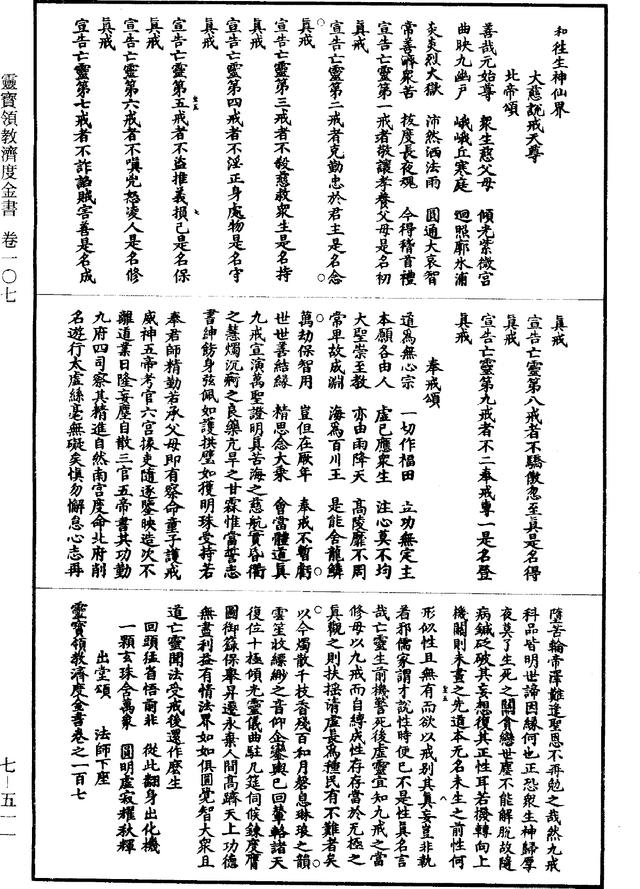 和往生神仙界
大慈說戒天尊
北帝頌
善哉元始尊　衆生慈父母　傾光紫微宮
曲映九幽戶　峨峨丘寒庭　廻照廓冰浦
炎炎烈火獄　沛然洒法雨　圓通大哀智
常善濟衆苦　拔度長夜魂　今得稽首禮
宣告亡靈第一戒者敬讓孝養父母是名初
真戒
宣告亡靈第二戒者克勤忠於君主是名念
真戒
宣告亡靈第三戒者不殺慈救衆生是名持
真戒
宣告亡靈第四戒者不淫正身處物是名守
真戒
宣告亡靈第五戒者不盜推義損己是名保
真戒
宣告亡靈第六戒者不嗔兇怒凌人是名修
真戒
宣告亡靈第七戒者不詐諂賊害善是名成
真戒
宣告亡靈第八戒者不驕傲忽至真是名得
真戒
宣告亡靈第九戒者不二奉戒專一是名登
真戒
奉戒頌
道爲無心宗　一切作福田　立功無定主
本願各由人　虛己應衆生　注心莫不均
大聖崇至教　亦由雨降天　高陵靡不周
常卑故成淵　海爲百川王　是能舍龍鱗
萬劫保智用　豈但在厥年　奉戒不暫虧
世世善結緣　精思念大乘　會當體道真
九戒宣演萬聖證明真苦海之慈航實昏衢
之慧燭沉痾之良藥亢旱之甘霖惟當誓志
書紳飭身弦佩如護拱璧如獲明珠受持若
奉君師精勤若承父母即有察命童子護戒
威神五帝考官六宮掾吏隨逐鑒映造次不
離道業日隆妄塵自散三官五帝書其功勤
九府四司察其精進自然南宮度命北府削
名遊行太虛絲毫無礙矣慎勿懈怠心志再
墮苦輪帝澤難逢聖恩不再勉之哉然九戒
科品皆明世諦因緣何也正恐衆生神歸厚
夜莫了生死之關貪戀世塵不能解脫故隨
病鍼砭破其妄想復其正性耳若撥轉向上
機關則未畫之先道本无名未生之前性何
形似性且無有而欲以戒别其真妄豈非執
着邪儒家謂才說性時便已不是性真名言
哉亡靈生前機警死後虛靈宜知九戒之當
修毋以九戒而自縛成性存存當於无極之
真觀之則扶摇清虛長爲種民有不難者矣
以今燭散千枝香殘百和月磬息琳琅之韻
雲笙收縹緲之音仰企鑾輿已回輦輅諸天
復位十極傾光靈儀曲駐几筵伺候鍊度膺
圖御籙保舉昇遷永棄人間高躋天上功德
無盡利益有情法界如如俱圓覺智大衆且
道亡靈聞法受戒後還作麽生
回頭猛省悟前非　從此翻身出化機
一顆玄珠含萬象　圓明虛寂耀秋輝
出堂頌　法師下座
靈寶領教濟度金書卷之一百七
靈寶領教濟度金書　卷一〇七
七—五一一